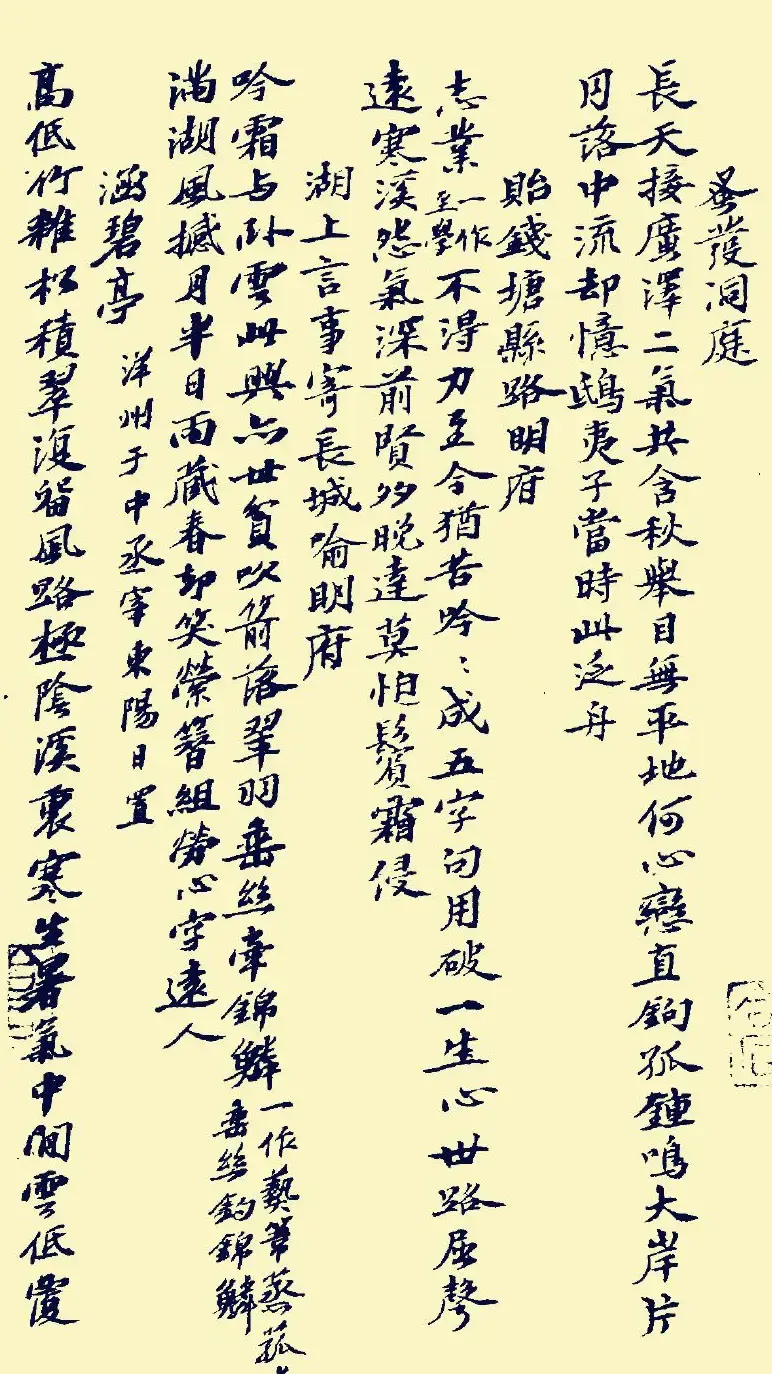 蚤發洞庭
長天接廣澤二氣共含秋舉目無平地何心戀直鉤孤鍾鳴大岸片
月落中流却憶鴟夷子當時此泛舟
貽錢塘縣路明府
志業一作至學不得力至今猶苦吟:成五字句用破一生心世路屈聲
遠寒溪怨氣深前賢多晚達莫怕鬢霜侵
湖上言事寄長城喻明府
吟霜与臥雲此興亦甘貧吹箭落翠羽垂絲牽錦鱗一作藝葦蒸菰
垂絲釣錦鱗
滿湖風撼月半日雨藏春却笑縈簪組勞心字遠人
涵碧亭 洋州于中丞宰東陽日置
高低竹雜松積翠復留風路極陰溪裏寒生暑氣中閒雲低覆